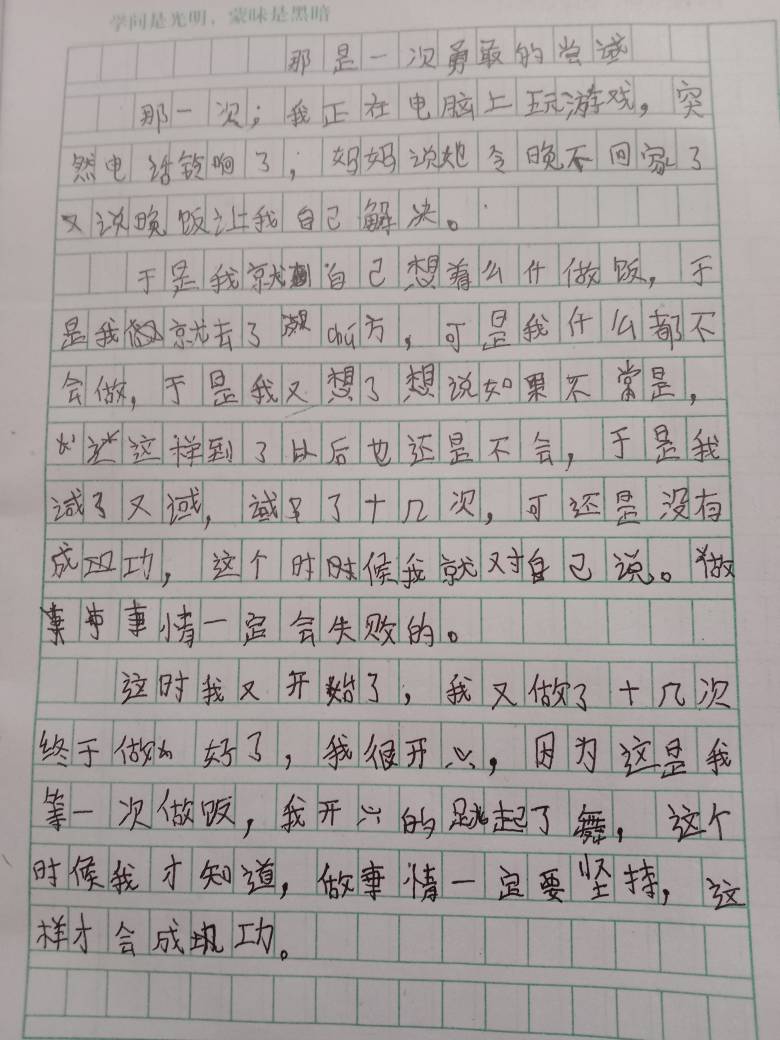 学问是光明，蒙昧是黑暗
那是一次勇敢的尝试
那一次；我正在电脑上玩游戏，突
然电话铃响了；妈妈说她今晚不回家了
又说晚饭让我自己解决。
于是我就自己想着么什做饭，于
是我就去了chú方，可是我什么都不
会做，于是我又想了想说如果不常是，
这样到了以后也还是不会，于是我
试了又试，试了十几次，可还是没有
成功，这个时候我就对自己说。做
事情一定会失败的。
这时我又开始了，我又做了十几次
终于做好了，我很开兴，因为这是我
等一次做饭，我开兴的跳起了舞，这个
时候我才知道，做事情一定要坚持，这
样才会成功。